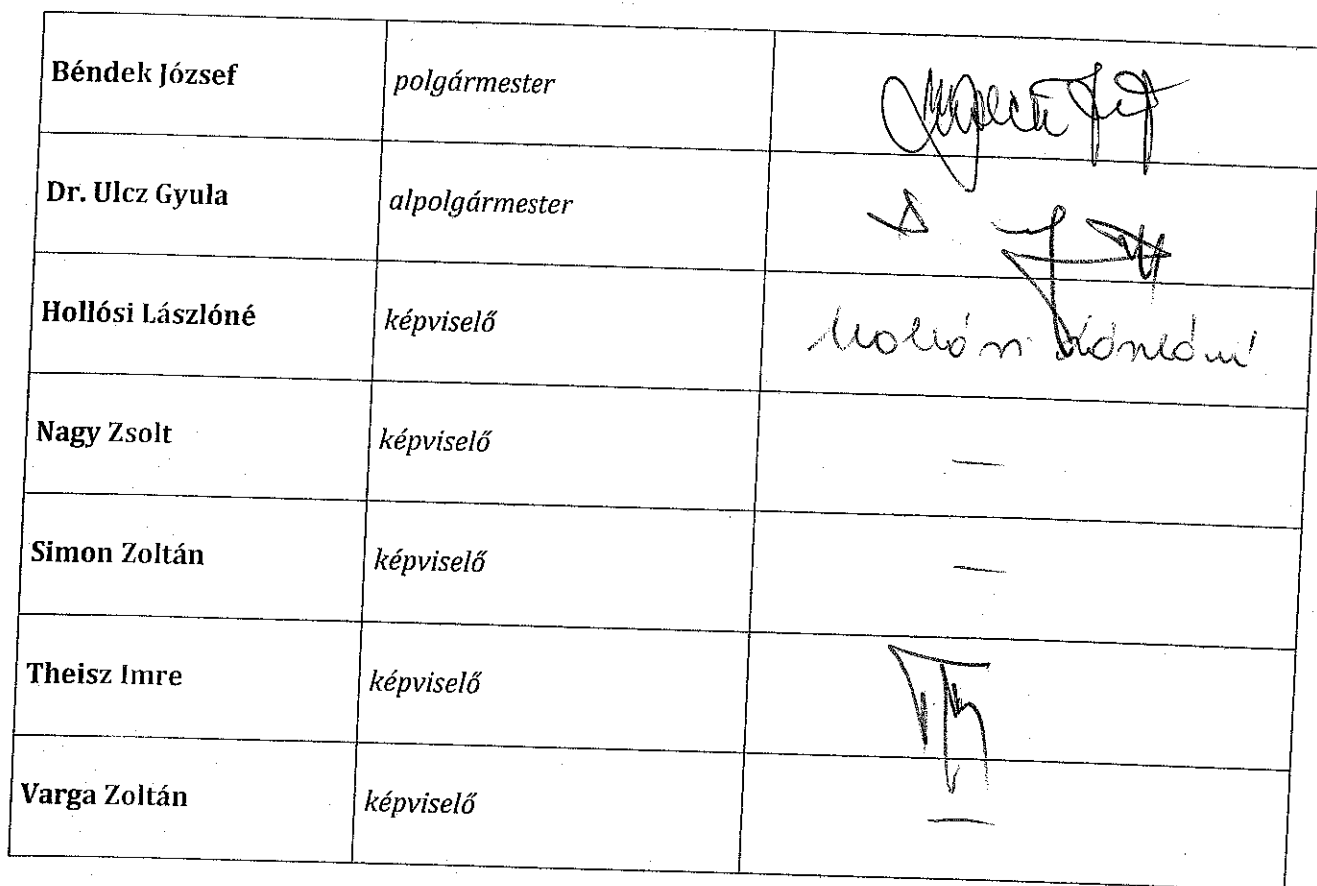 Béndek József polgármester
Dr. Ulcz Gyula alpolgármester
Hollósi Lászlóné képviselő Hollósi Lászlóné
Nagy Zsolt képviselő —
Simon Zoltán képviselő —
Theisz Imre képviselő
Varga Zoltán képviselő —